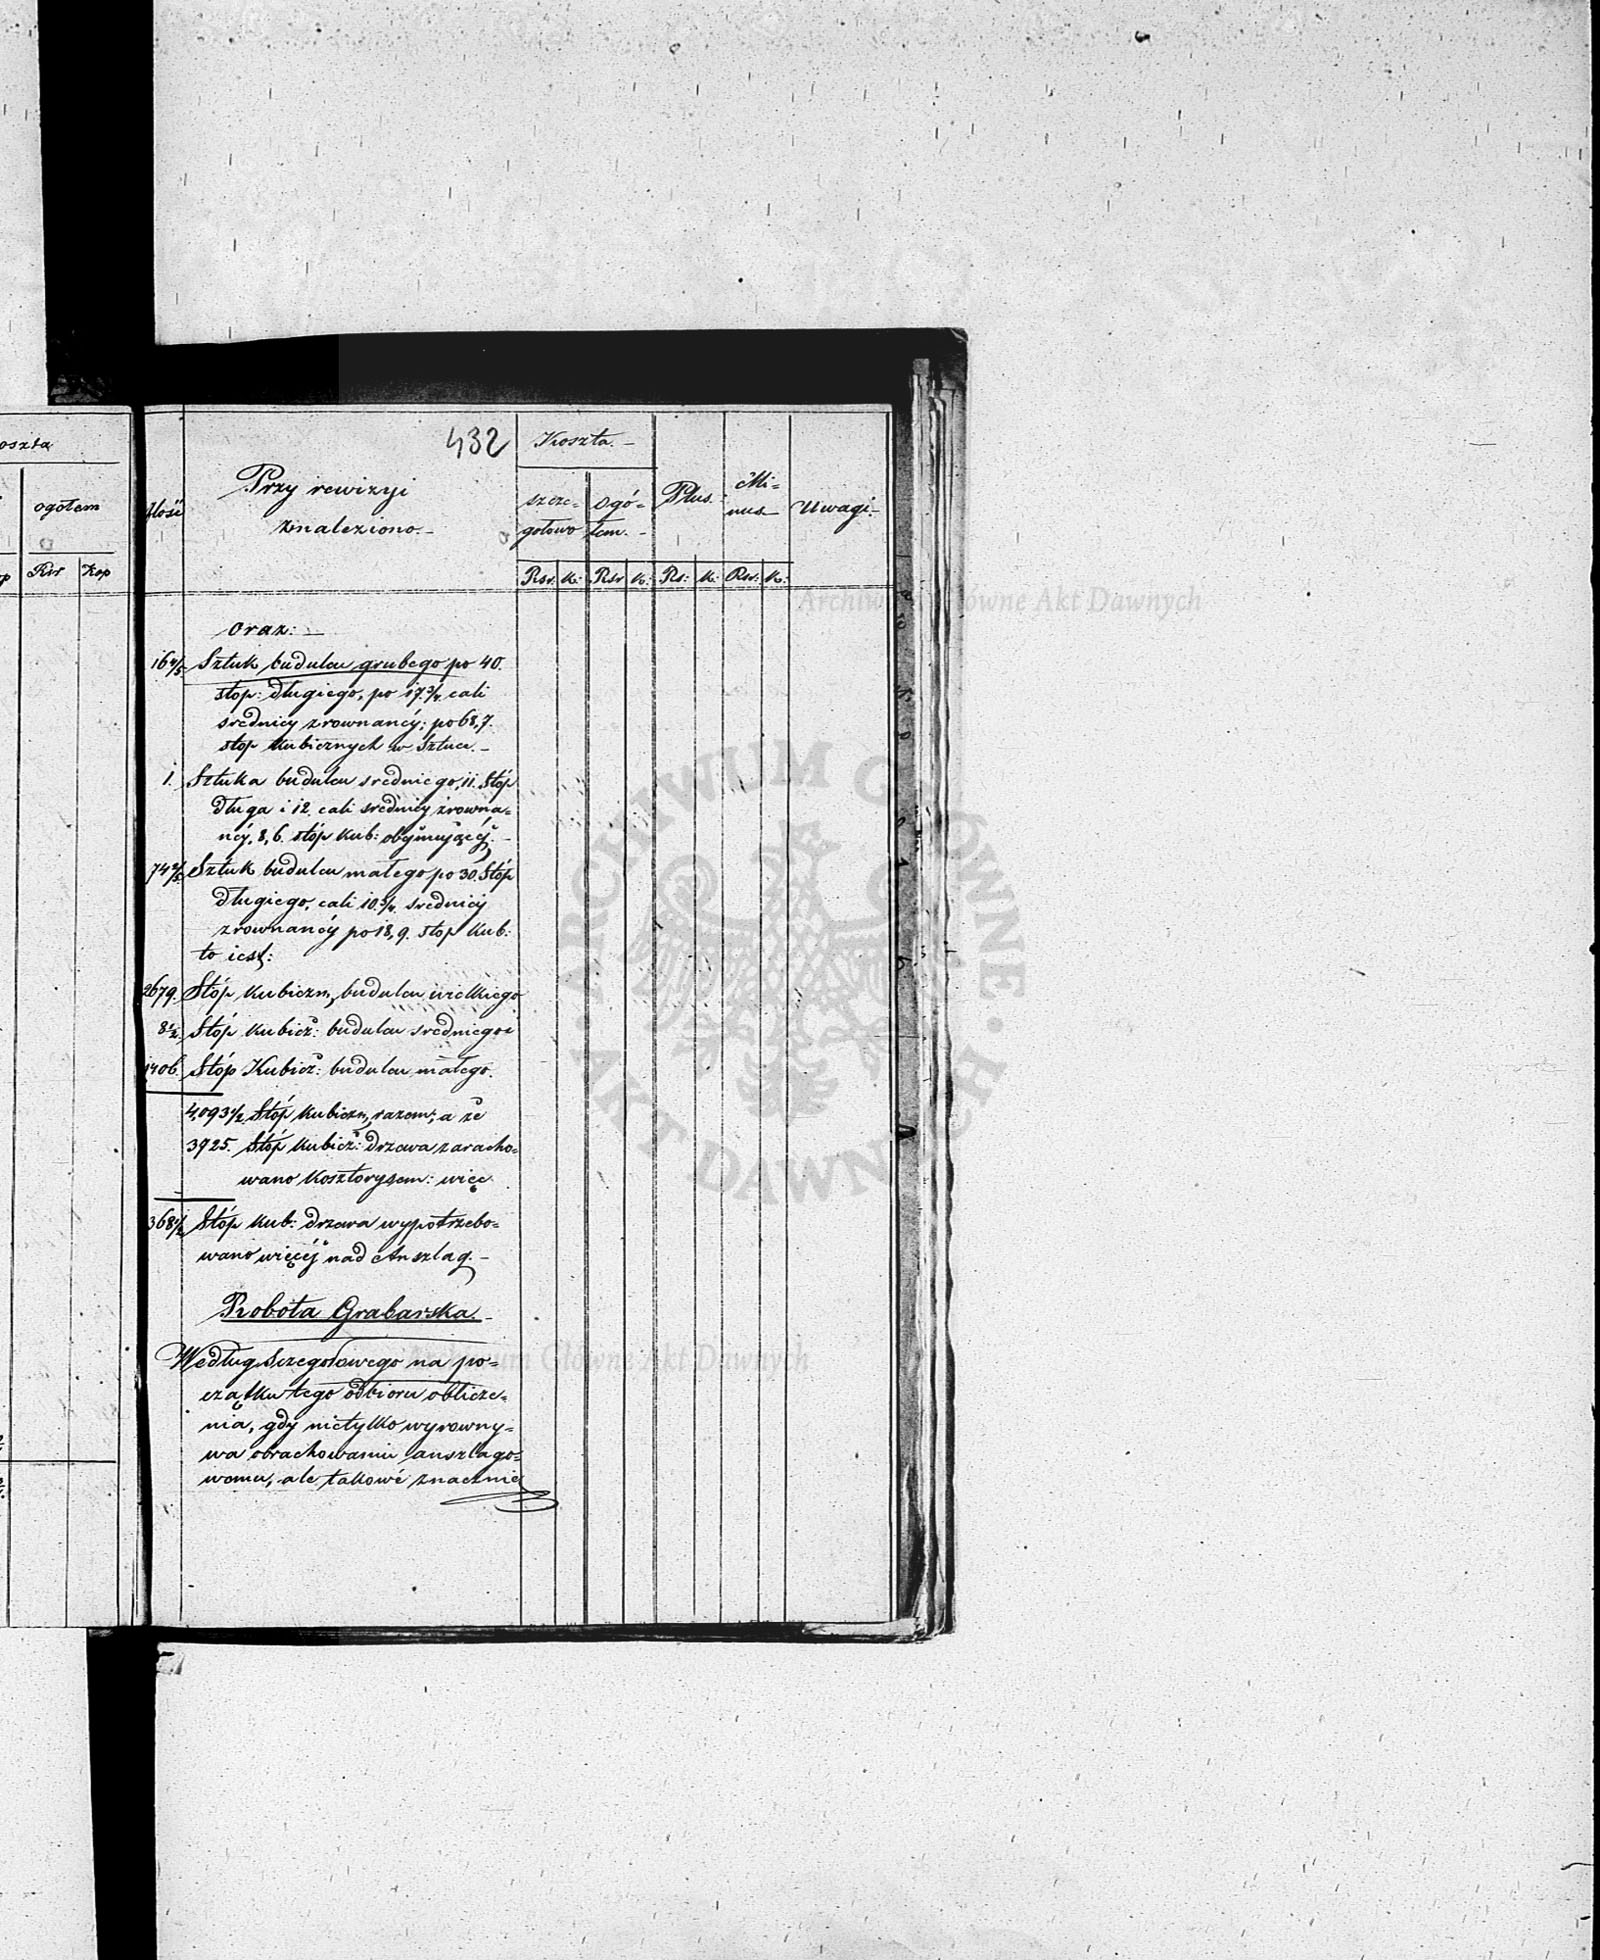 oszta
ogółem
Rsr Kop
432
Ilość
Przy rewizyi
znaleziono.-
Koszta.-
szcze= gółowo
Ogó= łem.-
Plus.
Mi= nus
Uwagi.-
Rsr. K: Rsr K: Rs: K: Rsr: K:
oraz:
16 Sztuk budulcu grubego po 40.
stop: długiego, po 17.3/4 cali
srednicy zrownanéy; po 68,7.
stop Kubicznych w Sztuce.-
1. Sztuka budulcu sredniego, 11. Stóp
długa i 12. cali srednicy zrowna=
néy, 8,6. stóp Kub: obeymuiącéy.-
74 2/5 Sztuk budulcu małego po 30. Stóp
długiego, cali 10.3/4. srednicy
zrownanéy po 18,9. stop Kub:
to iest:
2679. Stóp Kubiczn, budulcu wielkiego
8 1/2. Stóp Kubicz: budulcu sredniego i
1406. Stóp Kubicz: budulcu małego.
4,093 1/2 Stóp Kubiczn, razem; a że
3925. Stóp Kubicz: drzewa zaracho=
wano Kosztorysem: więc
368 1/2 Stóp Kub: drzewa wypotrzebo=
wano więcéj nad Anszlag.-
Robota Grabarska.-
Według sczegołowego na po=
czątku tego odbioru oblicze=
nia, gdy nietylko wyrowny=
wa obrachowaniu anszlago=
wemu, ale takowé znacznie
Archiwum Główne Akt Dawnych
Archiwum Główne Akt Dawnych
ARCHIWUM GŁÓWNE · AKT DAWNYCH ·